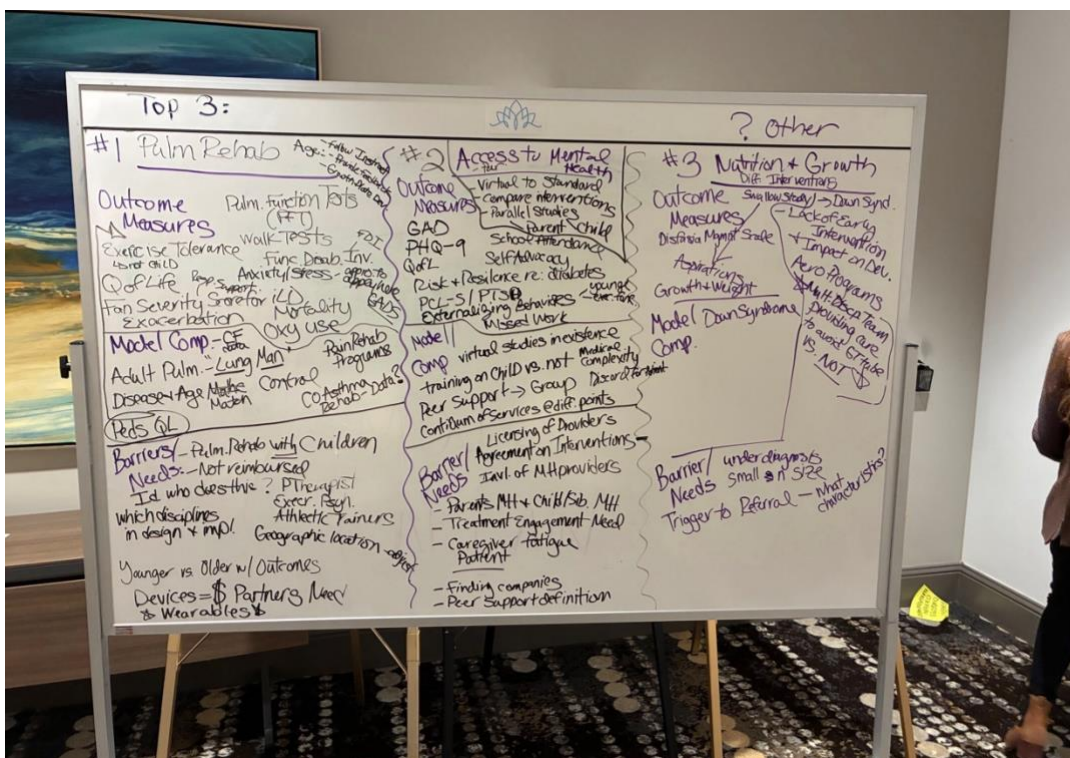 Top 3:
? Other
#1 Pulm Rehab
Age:
- Follow Instruct
Outcome
Measures
Pulm. Function Tests
(PFT)
Exercise Tolerance
Walk Tests
FDI
Func. Disab. Inv.
QofLife
Resp. Support.
Anxiety/Stress
GADs
Fan Severity Score for iLD
Exacerbation
Mortality
Oxy use
Model Comp. - CF
data
Adult Pulm. - "Lung Man"
Pain Rehab
Programs
Disease + Age
Control
CO Asthma
Rehab - Data?
Peds QL
Barriers/
Needs:
- Pulm. Rehab with Children
- Not reimbursed
Id who does this? PTherapist
Exer. Psyn.
Athlectic Trainers
which disciplines
in design + impl.
Geographic location
Younger vs. Older w/ Outcomes
Devices = $ Partners Need
$ Wearables $
#2 Access to Mental
Health
- Virtual to Standard
- Compare interventions
- Parallel studies
Parent Child
Outcome
Measures
GAD
PHQ-9
QofL
School Attendance
Self Advocacy
Risk + Resilence re: diabetes
PCL-5/PTSD
Externalizing Behaviors
younger
exec. func
Missed Work
Model
Comp
virtual studies in existence
training on ChILD vs. not
medical
complexity
Peer Support → Group
Contiduum of services @ diff. points
Barrier/
Needs
Licensing of Providers
Agreement on Interventions
Invl. of MH providers
- Parents MH + Child/Sib. MH
- Treatment Engagement Need
- Caregiver fatigue
Patient
- Finding companies
- Peer Support definition
#3 Nutrition + Growth
Diff. Interventions
Outcome
Measures
Swallow Study
→ Down Synd.
- Lack of Early
Intervention
+ Impact on Dev.
Mgmnt Scale
Aspirations
Growth + Weight
Aero Programs
Mult. Discp Team
providing care
to avoid GTube
vs. Not $
Model
Comp.
Down Syndrome
Barrier/
Needs
under diagnosis
Small n size
Trigger to Referral - what
characteristics?